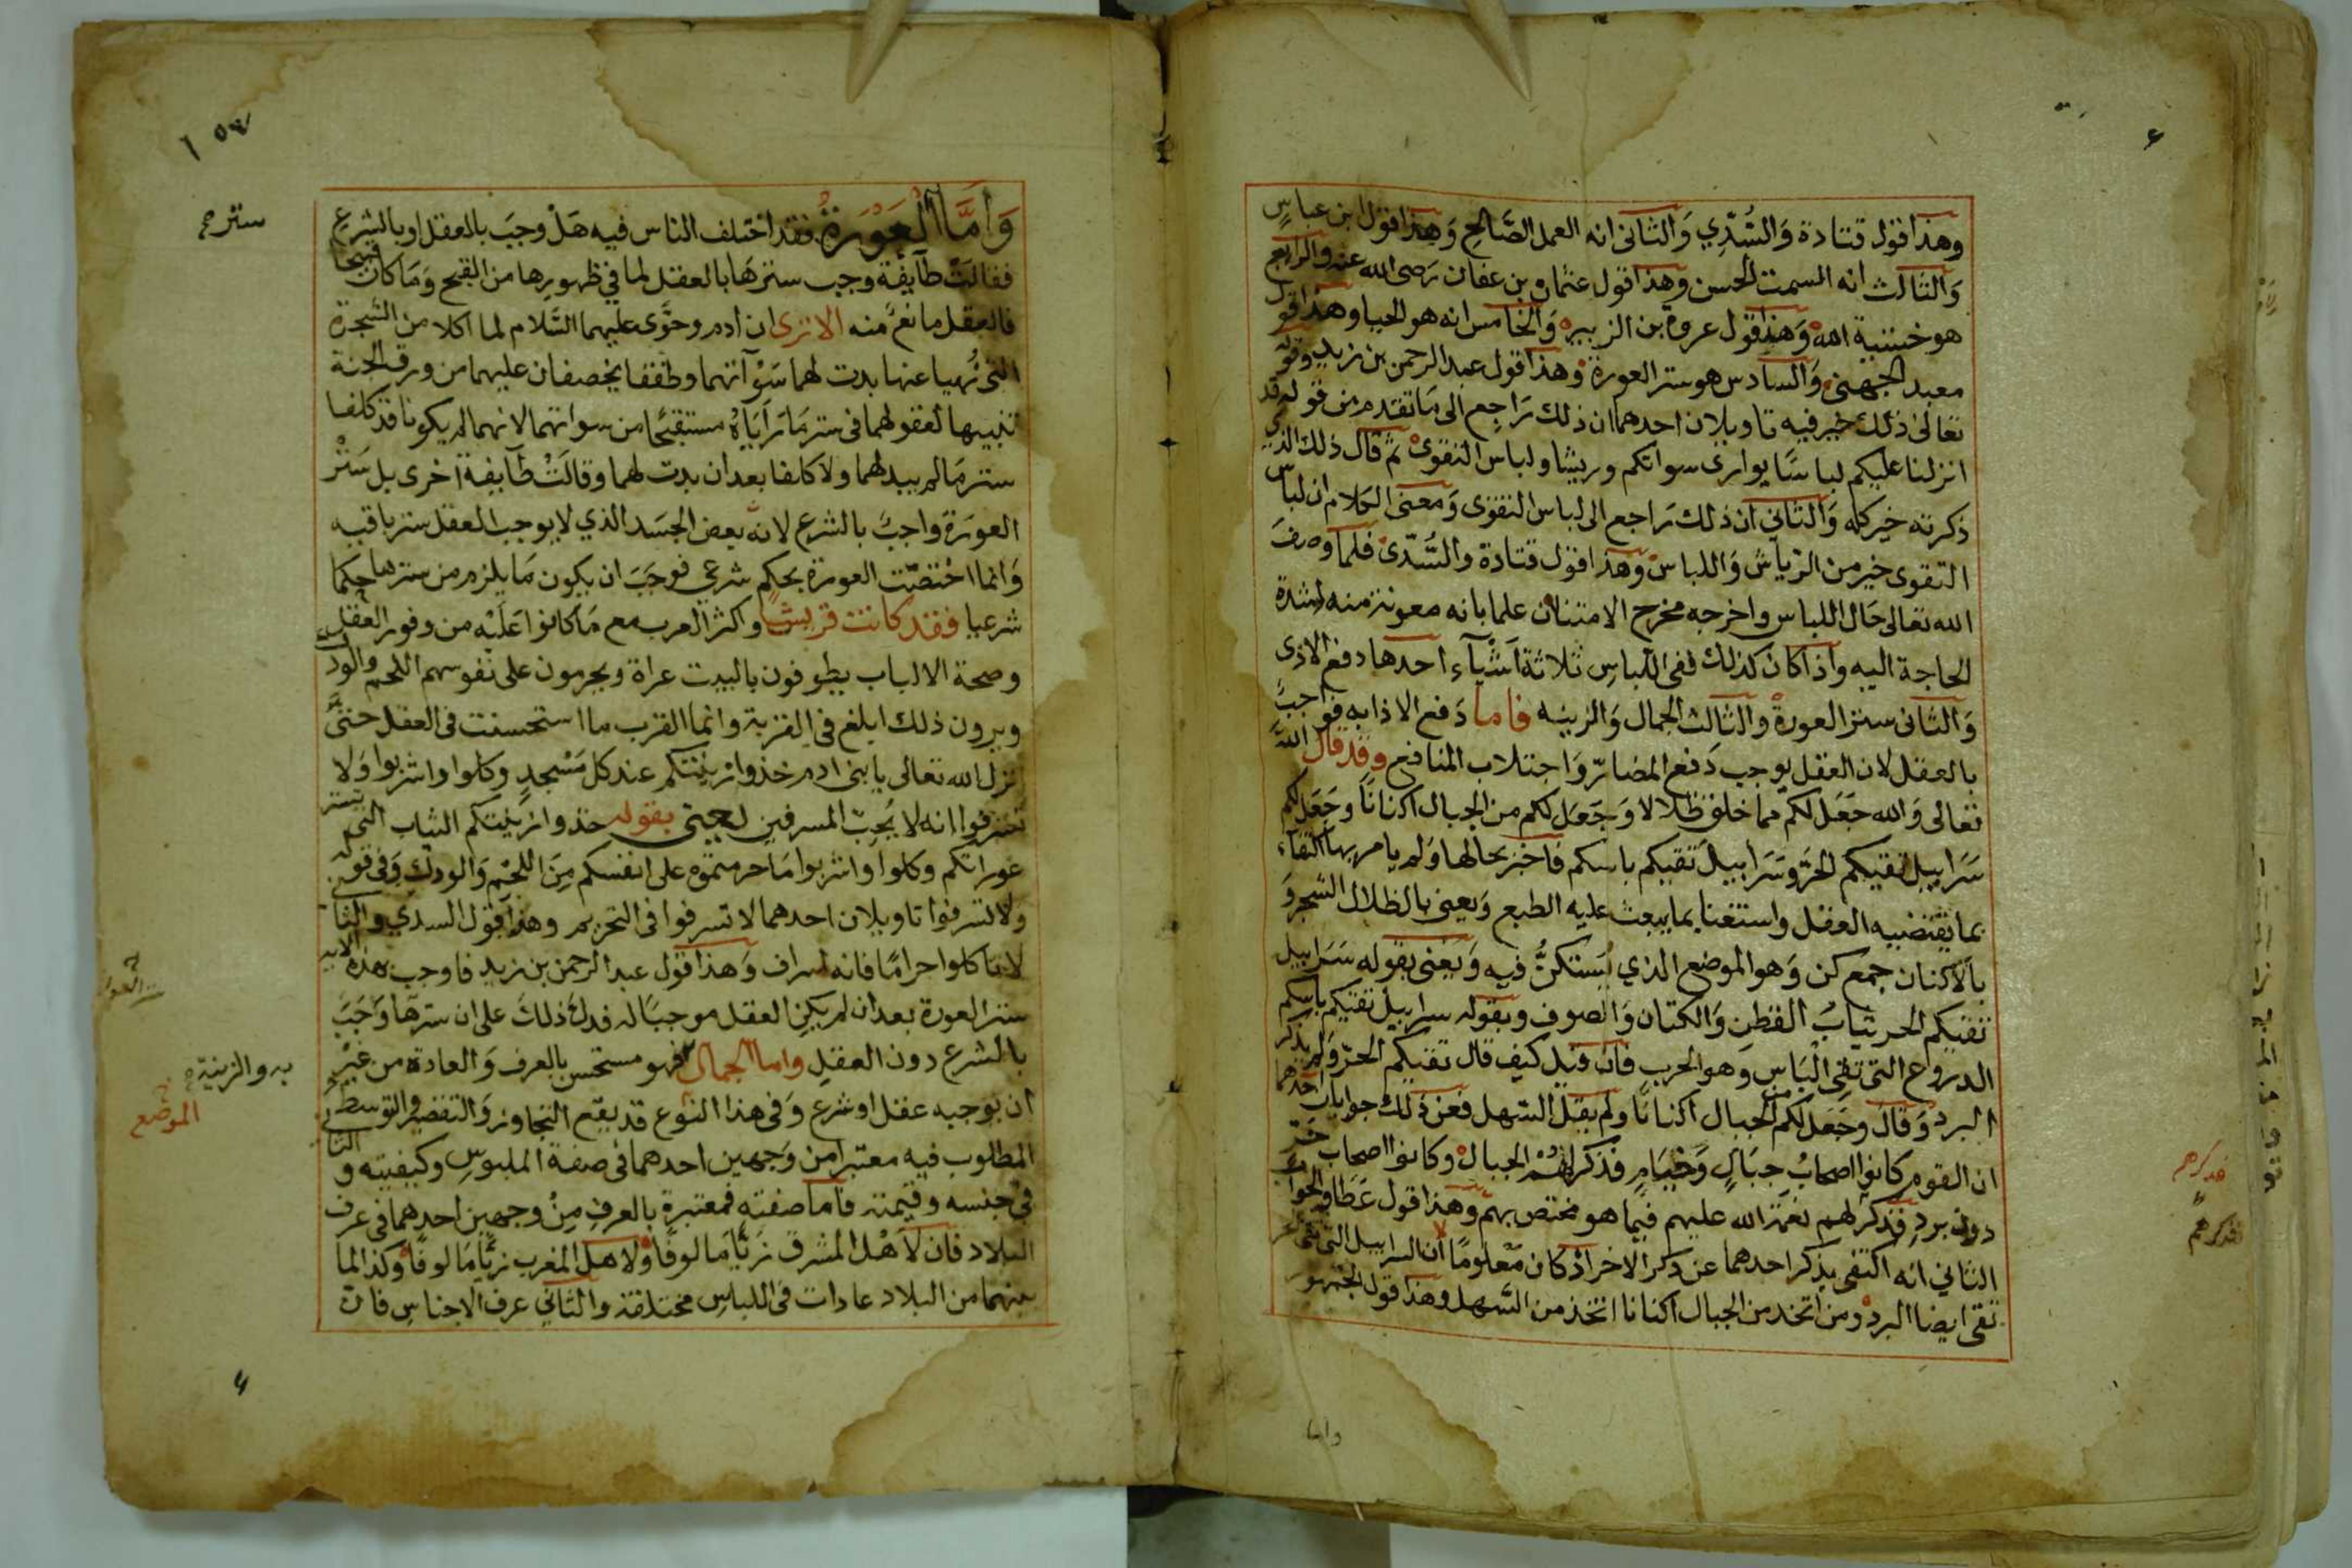 وهذا قول قتادة وَالسُّدِّي وَالثانى انه العمل الصَّالح وَهذا قول ابن عباسٍ
وَالثالث انه السمت الحسن وهذا قول عثمان بن عفان رَضى الله عنه والرابع
هو خشية الله وَهذا قول عروة بن الزبير وَالخامس انه هو الحيا وهذا قول
معبد الجهنى وَالسادس هو ستر العورة وهذا قول عبد الرحمن بن زيد وقوله
تعالى ذلك خير فيه تاويلان احدهما ان ذلك رَاجع الى مَا تقدم من قوله قد
انزلنا عليكم لباسًا يوارى سواتكم وريشا ولباس التقوى ثم قال ذلك الذي
ذكرته خير كله وَالثاني ان ذلك رَاجع الى لباس التقوى وَمعنى الكلام ان لباس
التقوى خير من الرياش وَاللباس وهذا قول قتادة والسُّدّى فلما وصفَ
الله تعالى حَال اللباس واخرجه مخرج الامتنان علما بانه معونة منه لشدة
الحاجة اليه واذا كان كذلك ففى اللّباسِ ثلاثة اَشْيَآء احدها دفع الاذى
وَالثانى ستر العورة والثالث الجمال وَالزينه فاما دَفع الاذا به فواجبٌ
بالعقل لان العقل يوجب دَفع المضارّ وَاجتلاب المنافع وقد قال اللهُ
تعالى وَالله جَعَل لكم مما خلق ظلالا وَجَعَل لكم من الجبال اكنانًا وجَعَل لكم
سَرَابيل تقيكم الحَرَّ وَسَرَابيلَ تقيكم باسكم فاخبر بحالها وَلم يامر بها اكتفآء
بما يقتضيه العقل واستغنا بما يبعث عليه الطبع وَيعنى بالظلال الشجر وَ
بالاكنان جمع كن وَهو الموضع الذي يُستكنُّ فيه وَيَعْنى بقوله سَرَابيل
تقيكم الحر ثيابُ القطن وَالكتان وَالصوف وبقوله سرابيل تقيكم باسكم
الدروع التى تقى الْبَاس وهو الحرب فان قيل كيف قال تقيكم الحرّ وَلم يذكر
البرد وَقال وجَعَل لكم من الجبال اكنانًا ولم يقل السهل فعن ذلك جوابان احدهما
ان القوم كانوا اصحابُ جبَالٍ وَخيَامٍ فذكر لهُمْ الجبال وكانوا اصحاب حَرٍّ
دون بردٍ فذكر لهم نعمَة الله عليهم فيما هو مختص بهم وَهذا قول عَطَا والجواب
الثاني انه اكتفى بذكر احدهما عن ذكر الاخر اذ كان مَعْلومًا ان السرابيل التى تقى الحر
تقى ايضا البرد ومن اتخذ من الجبال اكنانا اتخذ من السَّهل وهذا قول الجمهور
فذكرهم
فذكرهم
واما
وَامَّا الْعَوْرَةُ فقد اختلف الناس فيه هَلْ وجبَ بالعقل او بالشرع
فقالَتْ طآيفة وجب سترهَا بالعقل لما في ظهورها من القبح وَمَا كان قبيحا
فالعقل مانعٌ منه الا ترى ان ادم وحوَّى عليهما السَّلام لما اكلا من الشَّجرة
التى نُهيا عنها بدت لهما سَوْآتهما وطفقا يخصفان عليهما من ورق الجنة
تنبيها لعقولهما فى ستر مَا رَأيَاهُ مستقبَحًا من سواتهما لانهما لم يكونا قد كلفا
ستر مَا لم يبد لهما ولا كلفا بعد ان بدت لهما وقالَتْ طآيفة اخرى بل سَتْر
العورَة واجبٌ بالشرع لانه بعض الجسَد الذي لا يوجب العقل ستر باقيه
وَانما اخْتصّت العورة بحكم شرعي فوجَبَ ان يكون مَا يلزم من سترها حكما
شرعيا فقد كانت قريش واكثر العرب مع مَا كانوا عَليْه من وفور العقل
وصحة الالباب يطوفون بالبيت عراة ويحرمون على نفوسهم اللحم والودك
ويرون ذلك ابلغ فى القربة وانما القرب ما استحسنت فى العقل حتىَّ
انزل الله تعالى يا بنى ادم خذوا زينتكم عند كل مَسْجدٍ وكلوا واشربوا وَلا
تسرفوا انه لا يُحِبّ المسرفين يعنى بقوله خذوا زينتكم الثياب التى تستر
عوراتكم وكلوا واشربوا مَا حرمتموه على انفسكم مِنَ اللحْم وَالودك وَفى قوله
ولا تسرفوا تاويلان احدهما لا تسرفوا فى التحريم وهذا قول السدي والثانى
لا تاكلوا حرامًا فانه اسراف وَهذا قول عبد الرحمن بن زيد فاوجب بهذه الايه
ستر العورة بعد ان لم يكن العقل موجبًا له فدل ذلكَ على ان سترها وَجَبَ
بالشرع دون العقل واما الجمال فهو مستحسن بالعرف وَالعادة من غيْر
ان يوجبه عقل او شرع وَفى هذا النوع قد يقع التجاوز وَالتقصير والتوسط
المطلوب فيه معتبر من وَجهين احدهما فى صفة الملبوس وكيفيته و الثانى
فى جنسه وقيمته فاما صفته فمعتبرة بالعرف مِنْ وجهين احدهما فى عرف
البلاد فان لاَهْل المشرق زيًّا مَالوفًا ولاهل المغرب زيًّا مَالوفًا وكذا لما
بينهما من البلاد عادات فى اللباس مختلفة والثانى عرف الاجناس فان
سترح
به والزينة
الموضع